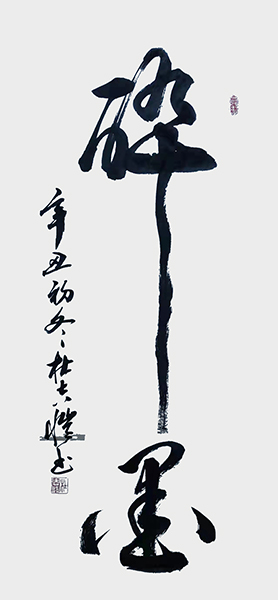 醉墨
辛丑初冬杜书